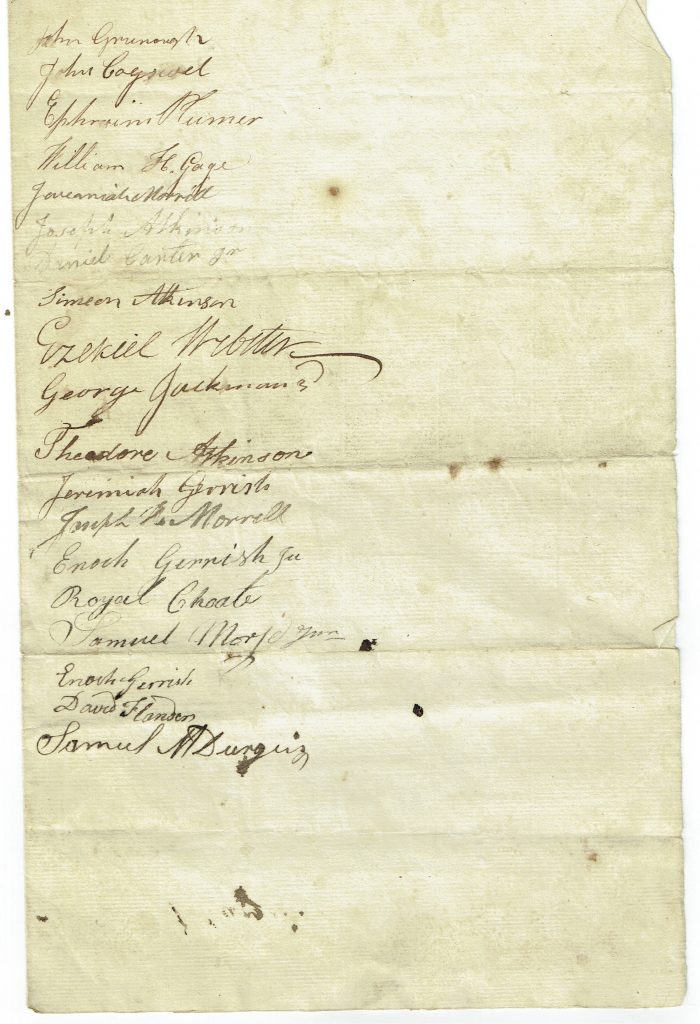 John Greenough
John Cogswel
Ephraim Plumer
William H. Gage
Morrill
Joseph Atkinson
Daniel Carter Jr
Simeon Atkinson
Ezekiel Webster
George Jackman 3d
Theodore Atkinson
Jeremiah Gerrish
Joseph Morrell
Enoch Gerrish Ju
Royal Choate
Samuel Morse Jun
Enoch Gerrish
David Flanders
Samuel M Durgin